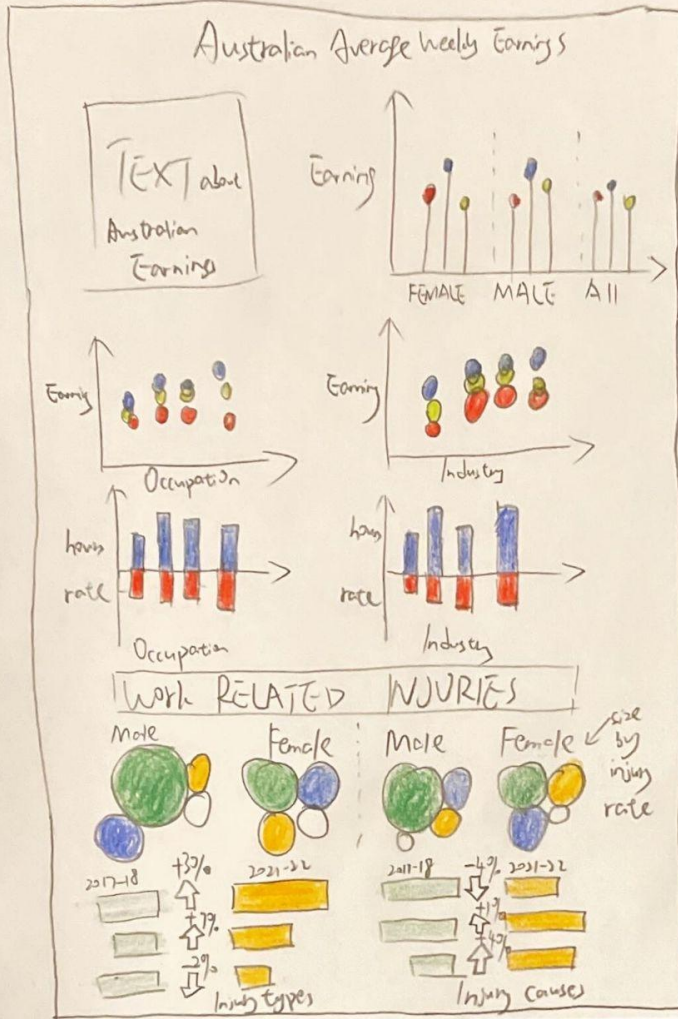 Australian Average Weekly Earnings
TEXT about
Australian
Earnings
Earning
FEMALE MALE All
Earning
Occupation
Earning
Industry
hours
rate
Occupation
hours
rate
Industry
Work RELATED INJURIES
Male Female
Male Female
size
by
injury
rate
2017-18 +3% 2021-22
+7%
-2%
Injury types
2017-18 -4% 2021-22
+1%
+4%
Injury causes